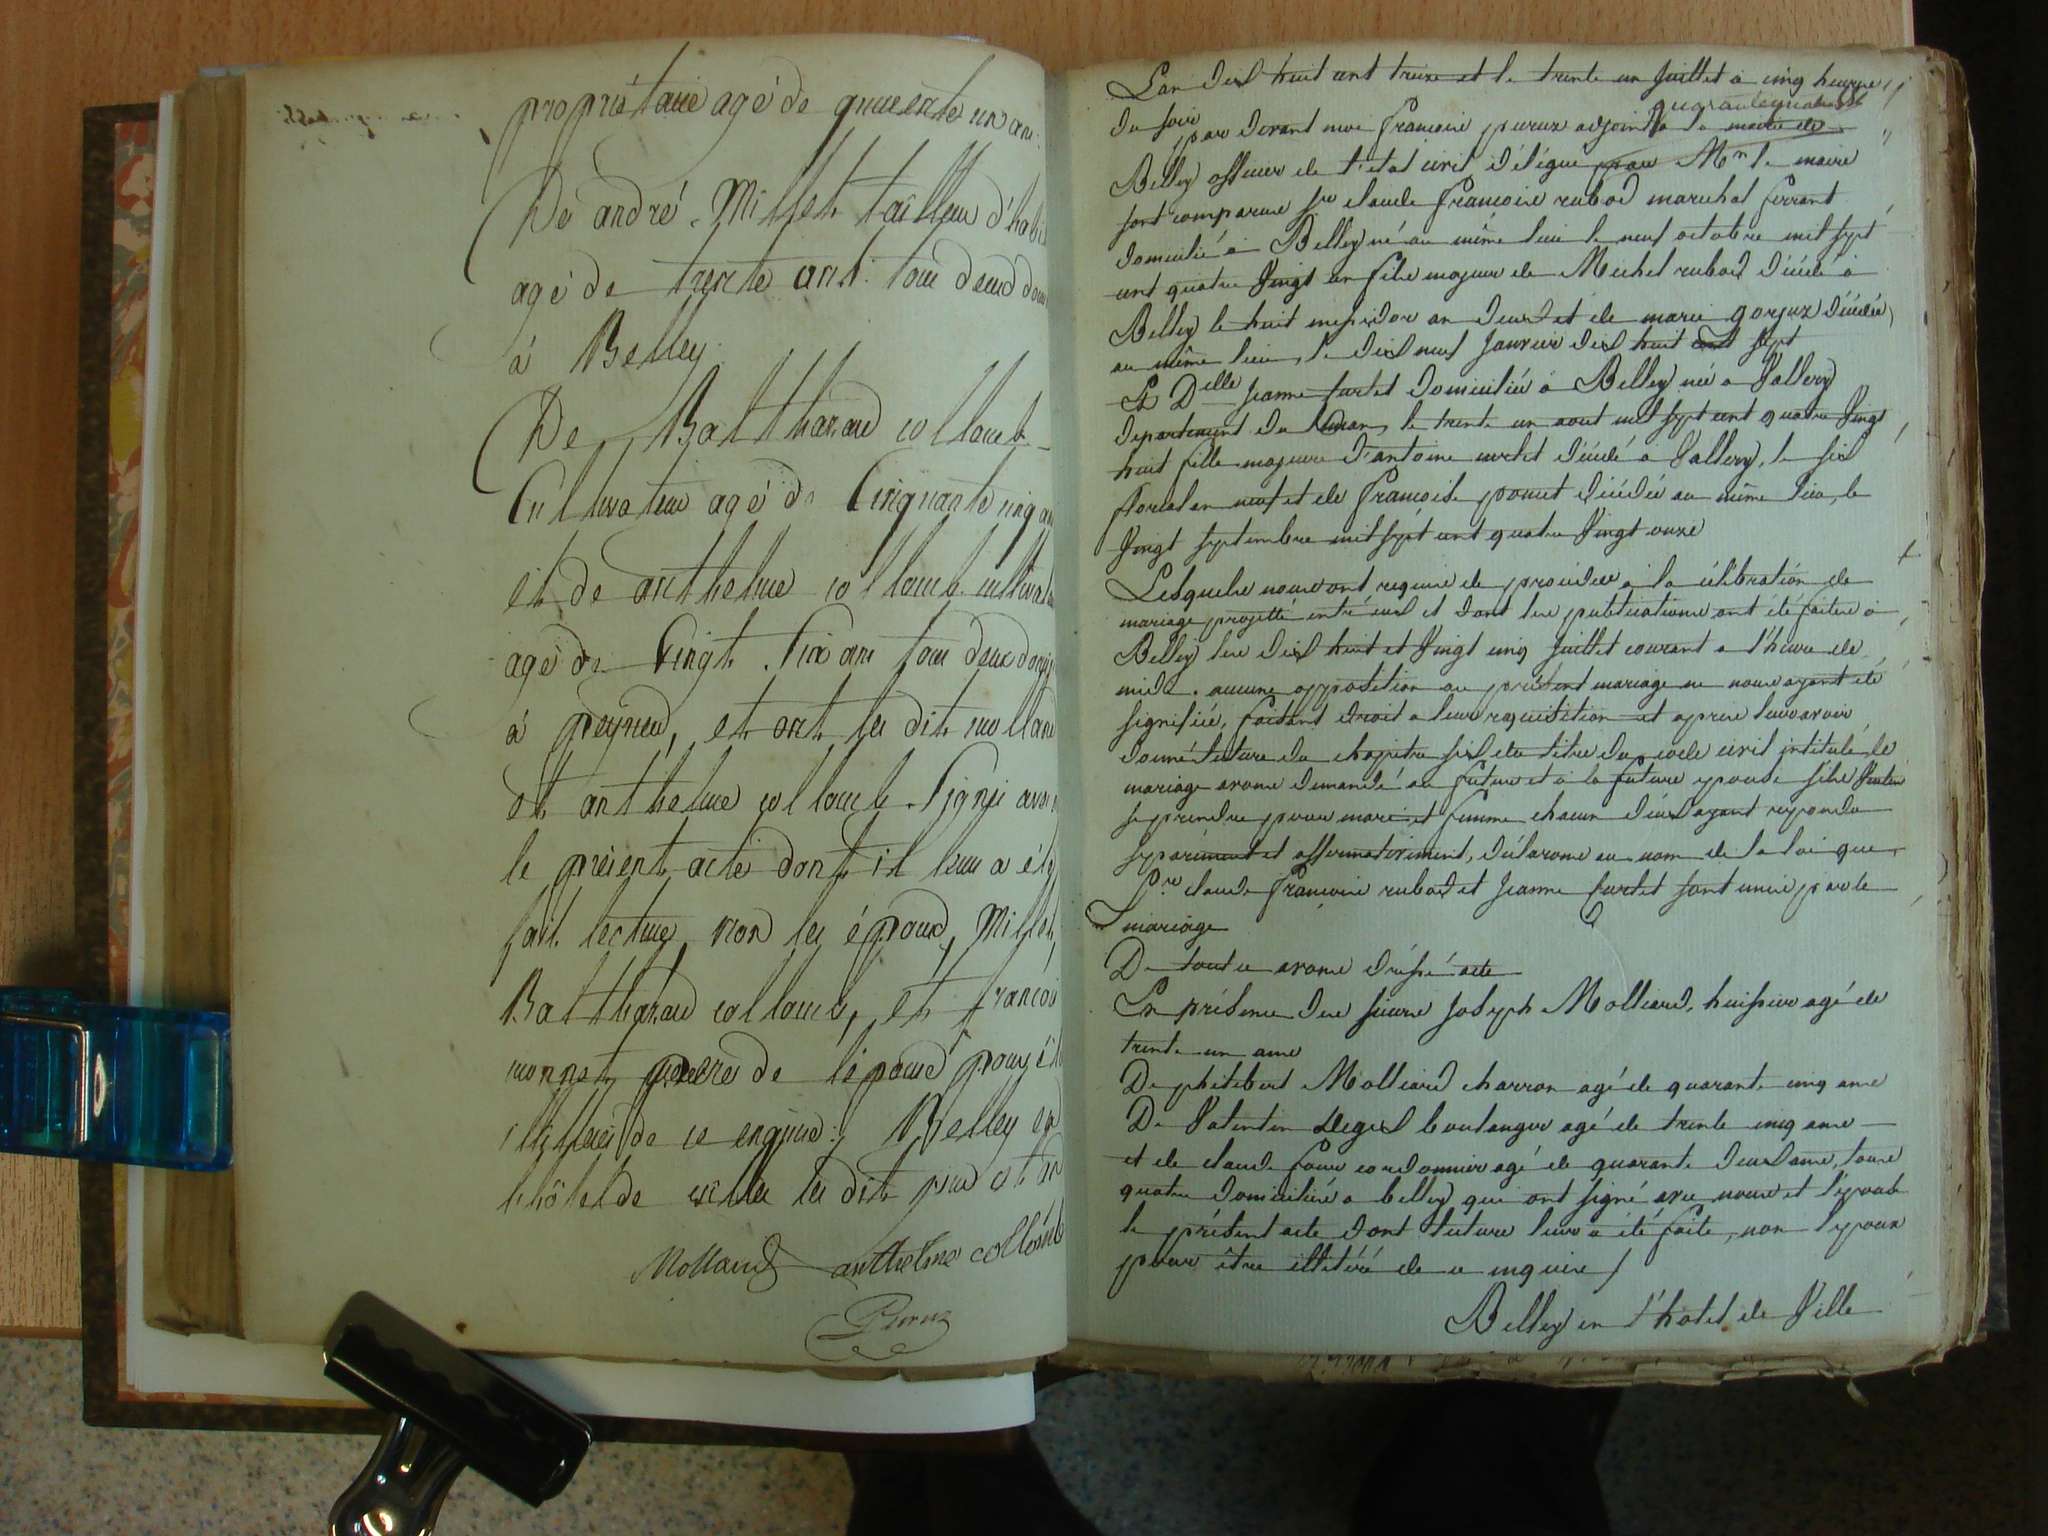 propriétaire agé de quarente un ans:
De andré Millet tailleur d'habit
agé de trente ans: tous deux dom
à Belley.
De Balthazard collomb
Cultivateur agé de Cinquante cinq an
et de anthelme collomb cultivate
agé de Vingt Six ans tous deux domi
à peyrieu, et ont les dits mollard
et anthelme collomb Signés avec
le présent acte dont il leur a été
fait lecture non les époux, Millet,
Balthazard collomb, et françois
monnet père de l'épouse pour être
illitérés de ce enquis: Belley en
l'hôtel de ville les dits jour et an
Mollard anthelme collomb
Peruz
L'an dix huit cent treize et le trente un Juillet à cinq heures
du soir
par devant nous françois peruz adjoint à la mairie de
Belley officier de l'état civil délégué par Mr le maire
sont comparus sr claude françois rubod marechal ferrant
domicilié à Belley né au même lieu le neuf octobre mil sept
cent quatre Vingt un fils majeur de Michel rubod décédé à
Belley le huit messidor an deux et de marie gorjux décédée
au même lieu, le dix neuf Janvier dix huit cent sept
Et Delle Jeanne curtet domiciliée à Belley née a Vallery
departement du leman, le trente un aout mil sept cent quatre Vingt
huit fille majeure d'antoine curtet décédé à Vallery, le six
floreal an neuf et de françoise décédée au même lieu, le
Vingt septembre mil sept cent quatre Vingt onze
Lesquels nous ont requis de proceder à la célébration de
mariage projetté entr'eux et dont les publications ont été faites à
Belley les dix huit et Vingt cinq Juillet courant a l'heure de
midi. aucune opposition au présent mariage ne nous ayant été
signifiée, faisant droit a leur requisition et après leur avoir
donné lecture du chapitre six du titre du code civil intitulé le
mariage avons demandé au futur et à la future epouse s'ils Veulent
se prendre pour mari et femme chacun deux ayant repondu
séparément et affirmativement, déclarons au nom de la loi que
Sre claude françois rubod et Jeanne curtet sont unis par le
mariage
De tout ce avons dréssé acte
En présence des sieurs Joseph Molliard, huissier agé de
trente un ans
De philibert Molliard charron agé de quarante cinq ans
De Valentin boulanger agé de trente cinq ans
et de claude cordonnier agé de quarante deux ans, tous
quatre domiciliés a belley qui ont signé avec nous et l'épouse
le présent acte dont lecture leur a été faite, non l'epoux
pour être illitéré de ce enquis /
Belley en l'hotel de Ville